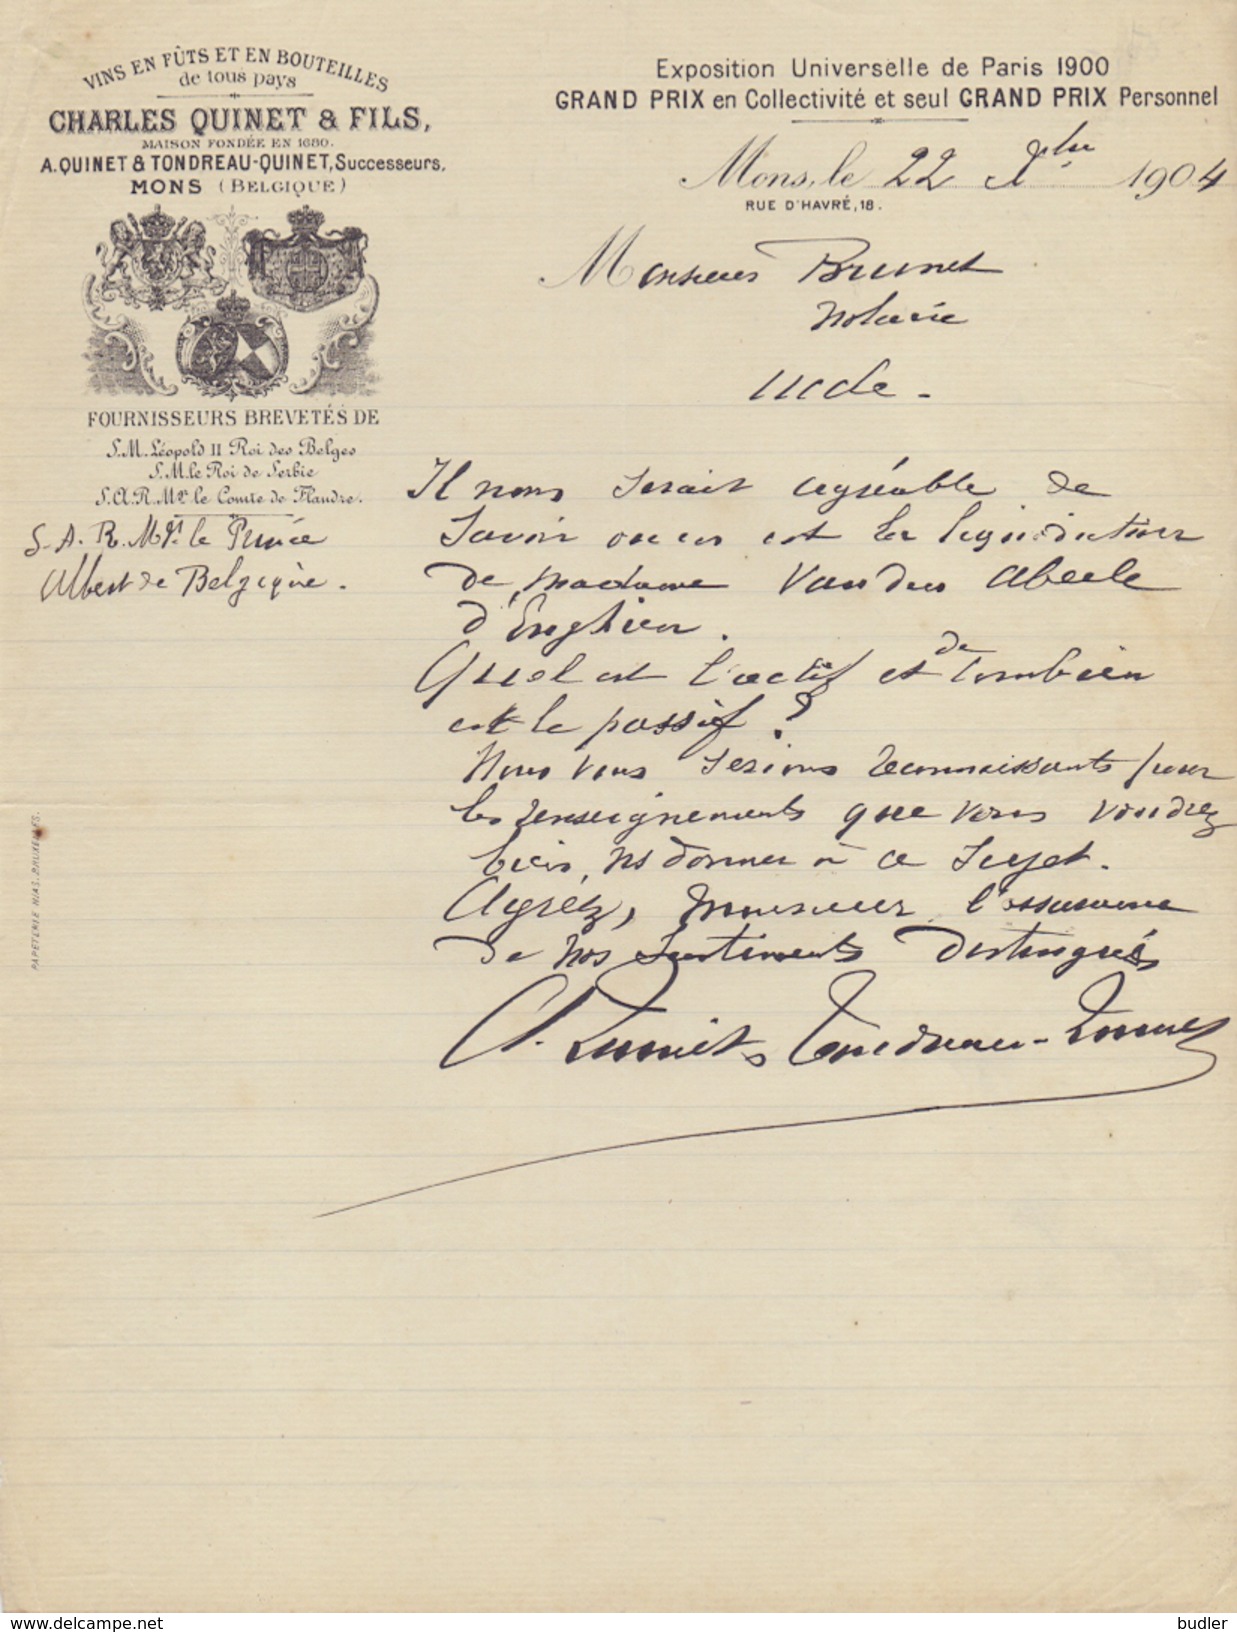 VINS EN FÛTS ET EN BOUTEILLES
de tous pays
CHARLES QUINET & FILS,
MAISON FONDÉE EN 1680.
A. QUINET & TONDREAU-QUINET, Successeurs.
MONS (BELGIQUE)
FOURNISSEURS BREVETÉS DE
S.M. Léopold II Roi des Belges
S.M. le Roi de Serbie
S.A.R. Mgr le Comte de Flandre.
S. A. R. Mgr. le Prince
Albert de Belgique.
Exposition Universelle de Paris 1900
GRAND PRIX en Collectivité et seul GRAND PRIX Personnel
Mons, le 22 Xbre 1904
RUE D'HAVRÉ, 18.
Monsieur Brunet
Notaire
Il nous serait agréable de
savoir où en est la liquidation
de madame Vanden Abeele
d'Enghien.
Quel est l'actif et de combien
est le passif ?
Nous vous serions reconnaissants pour
les renseignements que vous voudrez
bien ns donner à ce sujet.
Agréez, monsieur, l'assurance
de nos sentiments distingués
A. Quinet & Tondreau-Quinet
PAPETERIE NIAS. BRUXELLES.
www.delcampe.net
budler